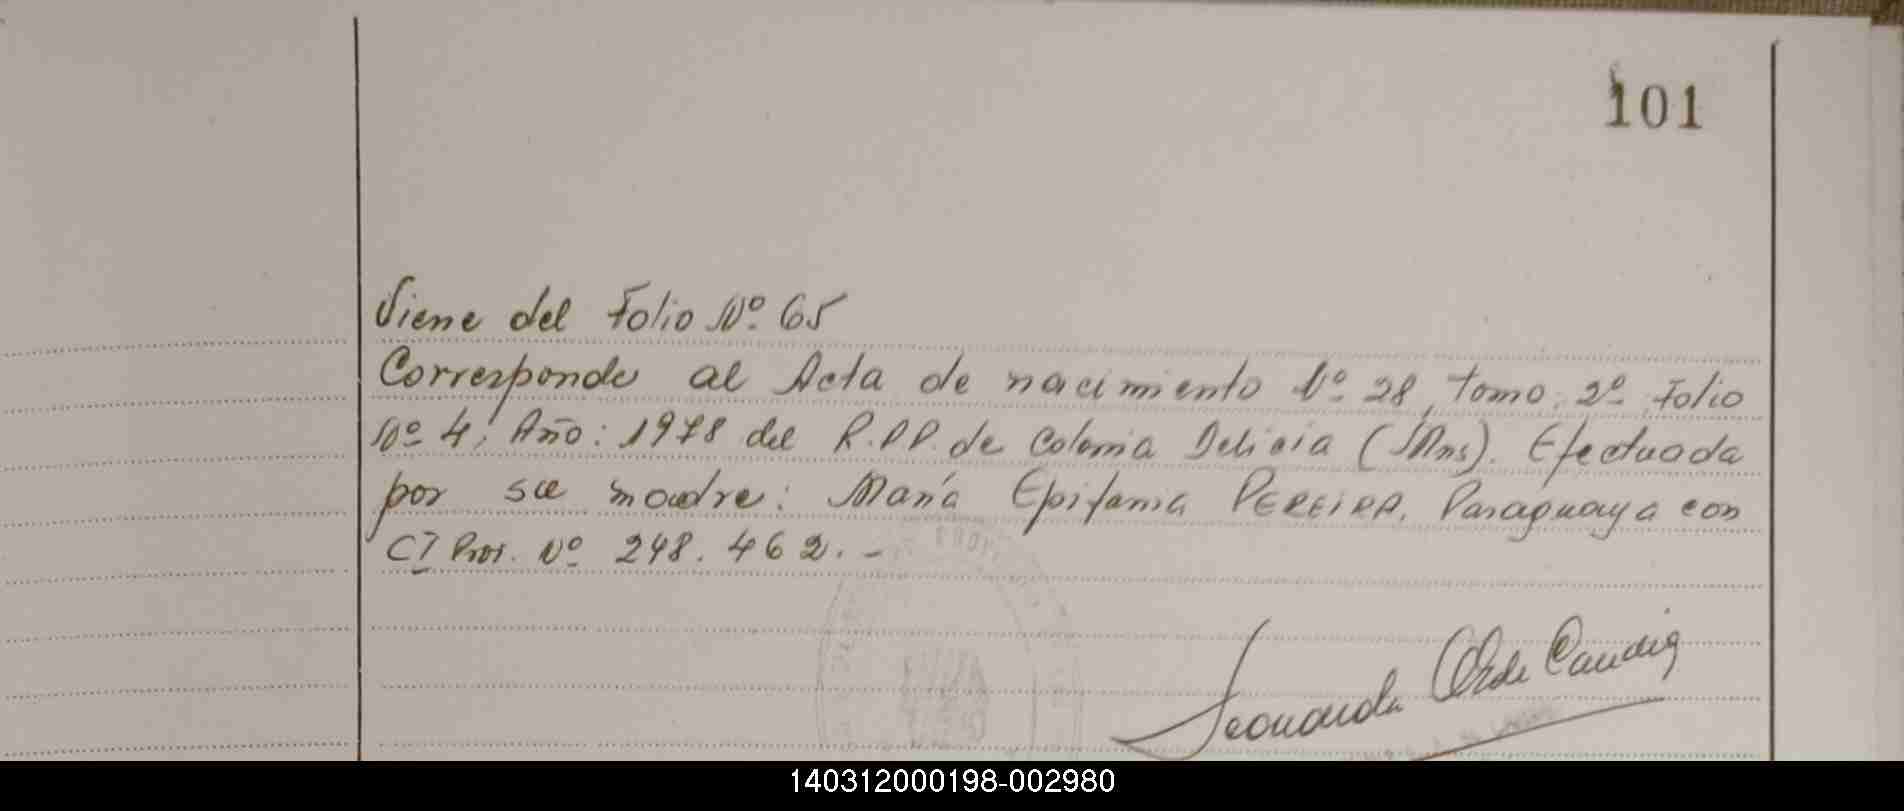 101
Viene del Folio Nº 65
Corresponde al Acta de nacimiento Nº 28, Tomo: 2º Folio
Nº 4, Año: 1978 del R.PP. de Colonia Delicia (Mns). Efectuada
por su madre: María Epifania PEREIRA, Paraguaya con
CI Pros. Nº 248.462.-
Leonarda
140312000198-002980